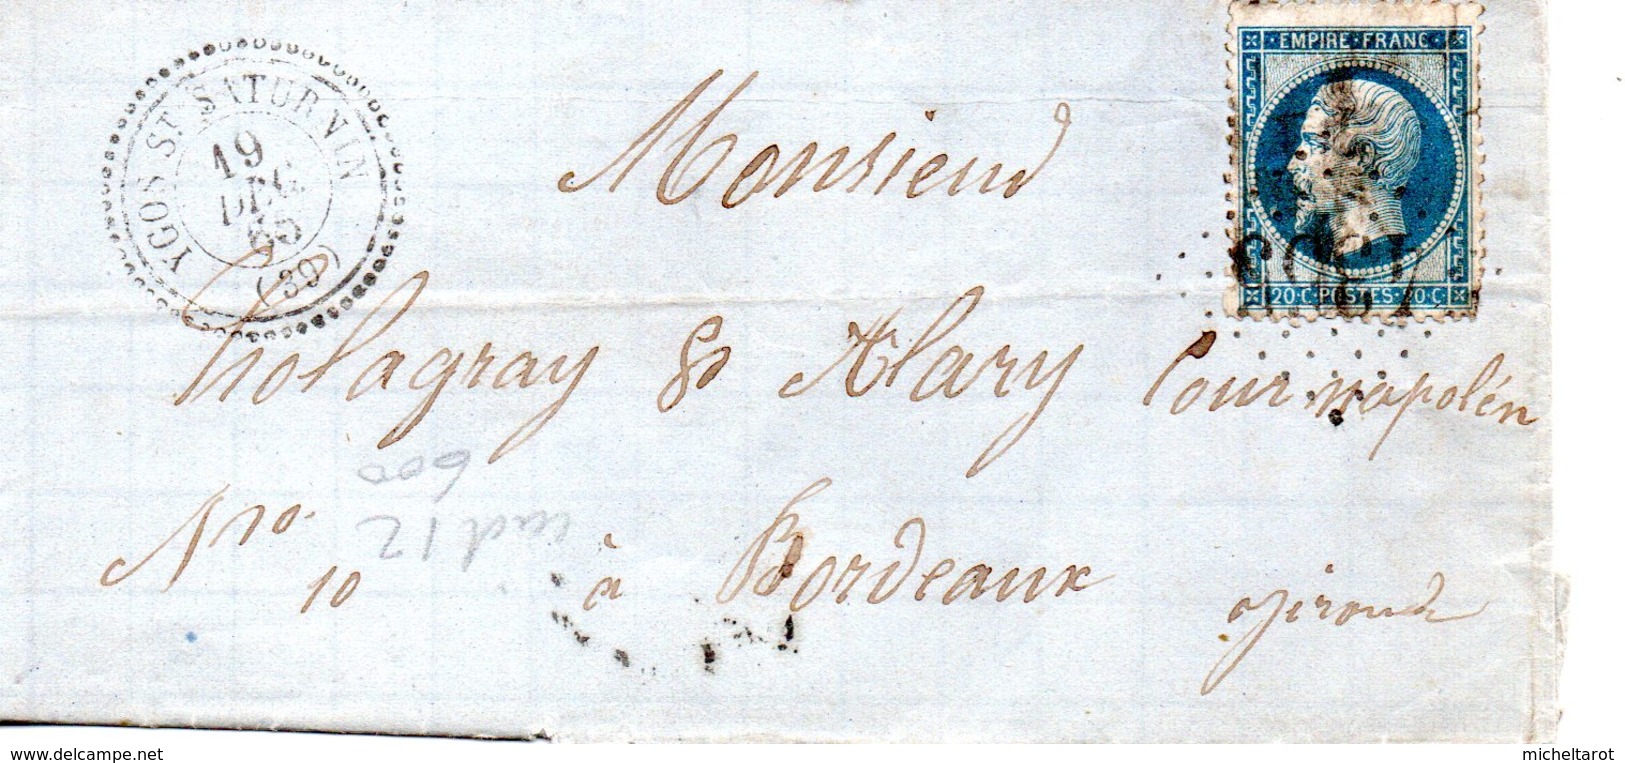 YGOS St SATURNIN
19
DEC
65
(39)
EMPIRE FRANC
20·C·POSTES·20·C
Monsieur
Cholagray & Alary Cour napolén
Nro 10 à Bordeaux
gironde
600
12
www.delcampe.net
micheltarot